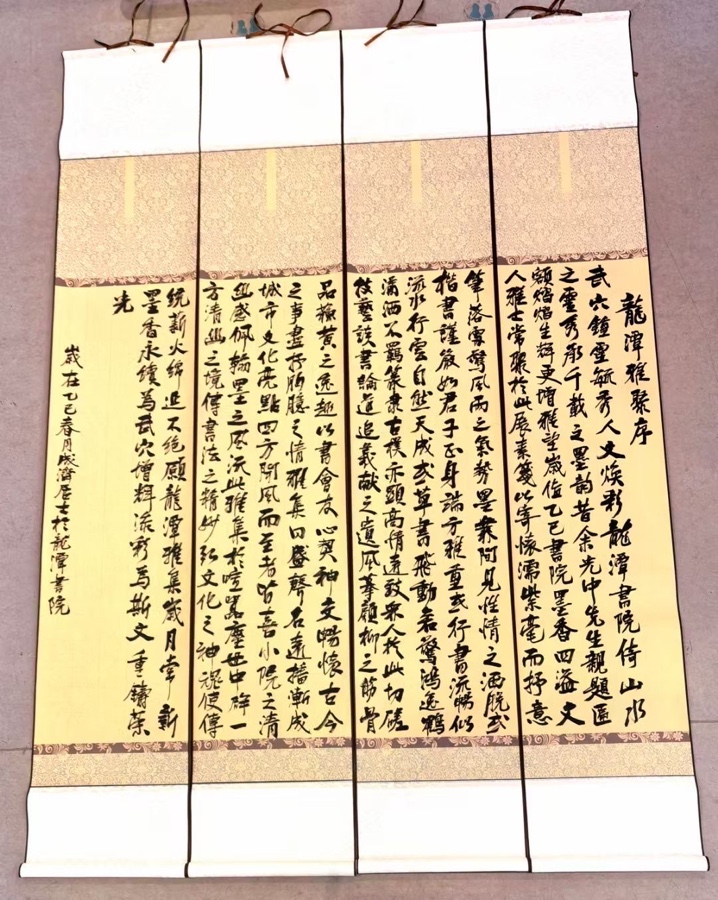 龍潭雅聚序
武穴鎮靈毓秀人文煥彩龍潭書院倚山水
之靈秀承千載之墨韵昔余光中先生親題匾
額熠焰生輝更增雅望歲值乙巳書院墨香四溢文
人雅士常聚於此展素箋以寄懷濡紫毫而抒意
筆落雲驚風雨之氣勢墨衆間見性情之洒脱或
楷書謹嚴如君子正身端方雅重或行書流暢似
流水行雲自然天成或草書飛動若驚鴻逸鶴
瀟洒不羈篆隶古樸亦顯高情遠致衆人於此切磋
技藝談書論道追羲献之遺風摹顏柳之筋骨
品蘇黄之逸趣以書會友心契神交暢懷古今
之事盡抒胸臆之情雅集日盛聲名遠播漸成
城市文化亮點四方聞風而至者皆喜小院之清
幽感佩翰墨之風流此雅集於喧囂塵世中辟一
方清幽之境傳書法之精妙弘文化之神魂使傳
統薪火綿延不絶願龍潭雅集歲月常新
墨香永續爲武穴增輝流彩爲斯文重鑄榮
光
歲在乙巳春月成濟居士於龍潭書院